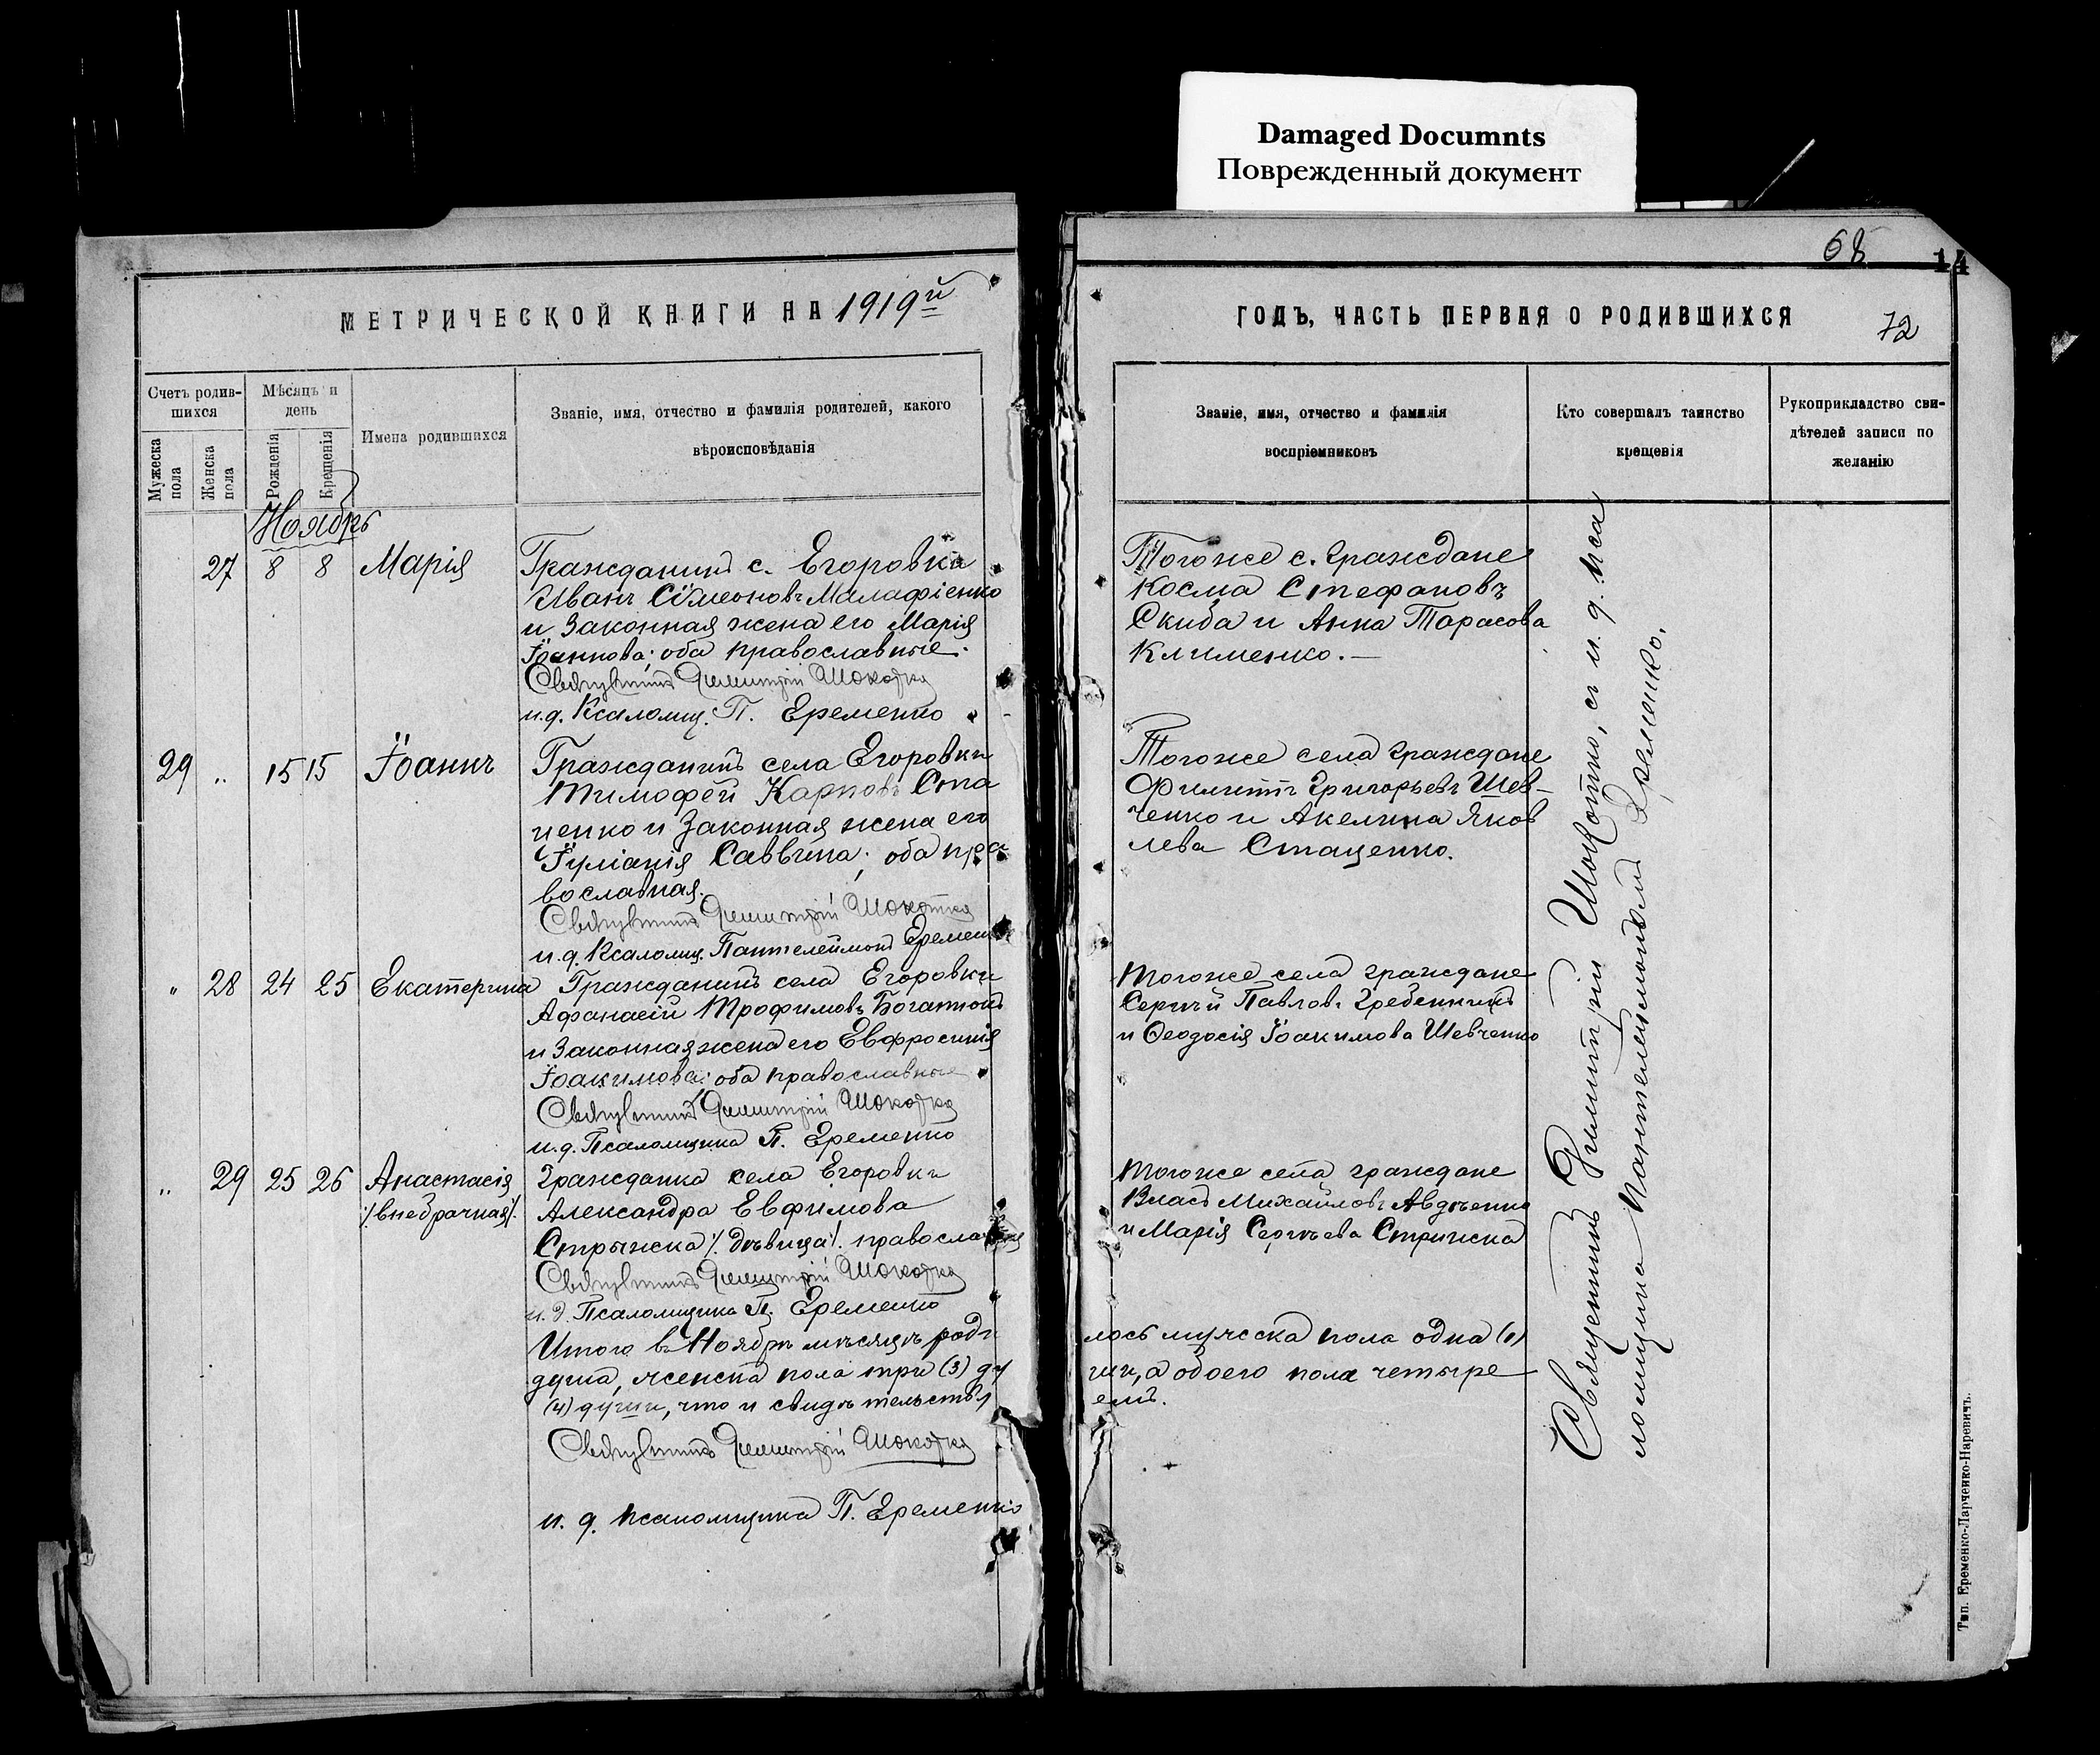 Damaged Documnts
Поврежденный документ
МЕТРИЧЕСКОЙ КНИГИ НА 1919й
Счетъ родив-
шихся
Мѣсяцъ и
день
Мужеска
пола
Женска
пола
Рожденія
Крещенія
Имена родившихся
Званіе, имя, отчество и фамилія родителей, какого
вѣроисповѣданія
Ноябрь
27 8 8 Марія Гражданинъ с. Егоровки
Иванъ Сѵмеоновъ Малафіенко
и законная жена его Марія
Іоаннова; оба православные.
Священникъ Димитрій Шокотко
и.д. Псаломщ. П. Еременко
29 „ 15 15 Іоаннъ Гражданинъ села Егоровки
Тимофей Карповъ Ста
ценко и законная жена его
Іуліанія Саввина; оба пра
вославная.
Священникъ Димитрій Шокотко
и.д. Псаломщ. Пантелеймонъ Еременко
„ 28 24 25 Екатерина Гражданинъ села Егоровки
Афанасій Трофимовъ
и законная жена его Евфросинія
Іоакимова; оба православные
Священникъ Димитрій Шокотко
и.д. Псаломщика П. Еременко
„ 29 25 26 Анастасія Гражданка села Егоровки
/внебрачная/. Александра Евфимова
Стрыжка /. дѣвица/. православная
Священникъ Димитрій Шокотко
и. д. Псаломщика П. Еременко
Итого въ Ноябрѣ мѣсяцѣ роди
душа, женска пола три (3) ду
(4) души, что и свидѣтельств
Священникъ Димитрій Шокотко
и. д. псаломщика П. Еременко
68
14
ГОДЪ, ЧАСТЬ ПЕРВАЯ О РОДИВШИХСЯ
72
Званіе, имя, отчество и фамилія
воспріемниковъ
Кто совершалъ таинство
крещенія
Рукоприкладство сви-
дѣтелей записи по
желанію
Того же с. граждане
Косма Стефановъ
Скиба и Анна Тарасова
Клименко.—
Того же села граждане
Филиппъ Григорьевъ Шев-
ченко и Акелина Яков
лева Стаценко.
Того же села граждане
Сергѣй Павловъ Гребенникъ
и Ѳеодосія Іоакимова Шевченко
Того же села граждане
Власъ Михайловъ Авдѣенко
и Марія Сергѣева Стрижка
лось мужеска пола одна (1)
ши, а обоего пола четыре
емъ.
Священникъ Димитрій Шокотко, съ и. д. пса
ломщика Пантелеймономъ Еременко.
Тип. Еременко-Ларченко-Наревичъ.